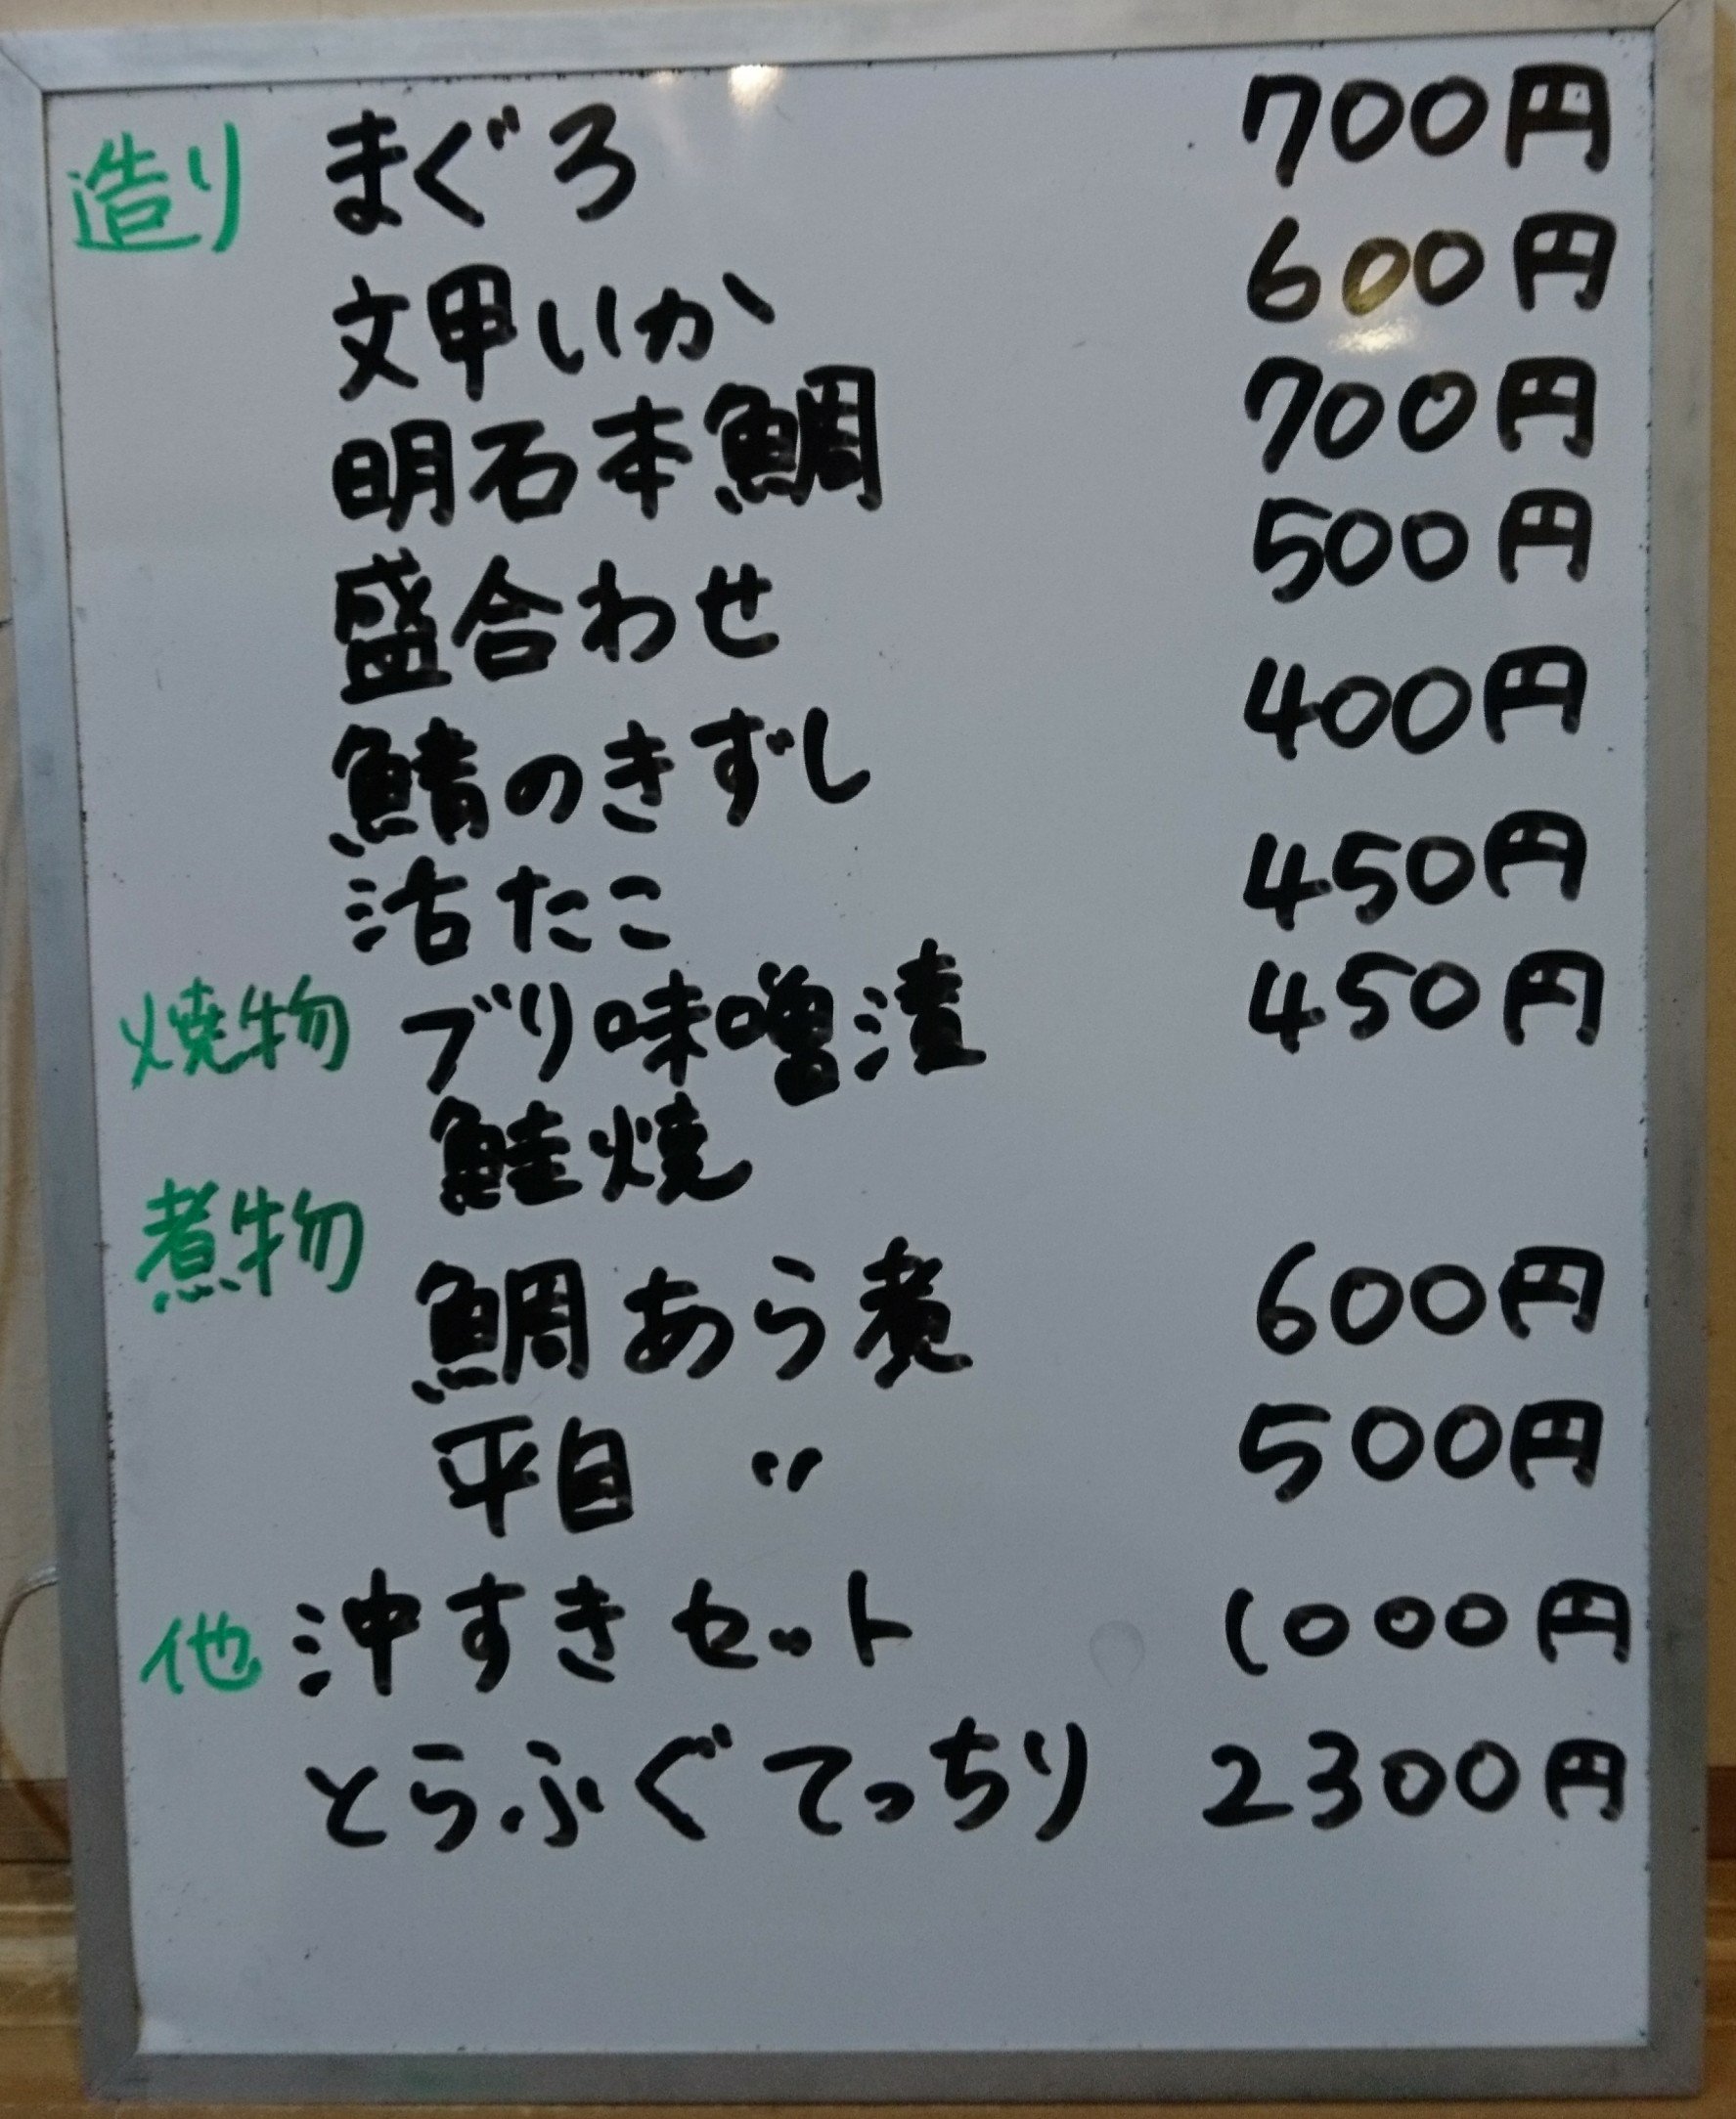 造り まぐろ 700円
文甲いか 600円
明石本鯛 700円
盛合わせ 500円
鯖のきずし 400円
活たこ 450円
焼物 ブリ味噌漬 450円
鮭焼
煮物
鯛あら煮 600円
平目 〃 500円
他 沖すきセット 1000円
とらふぐてっちり 2300円